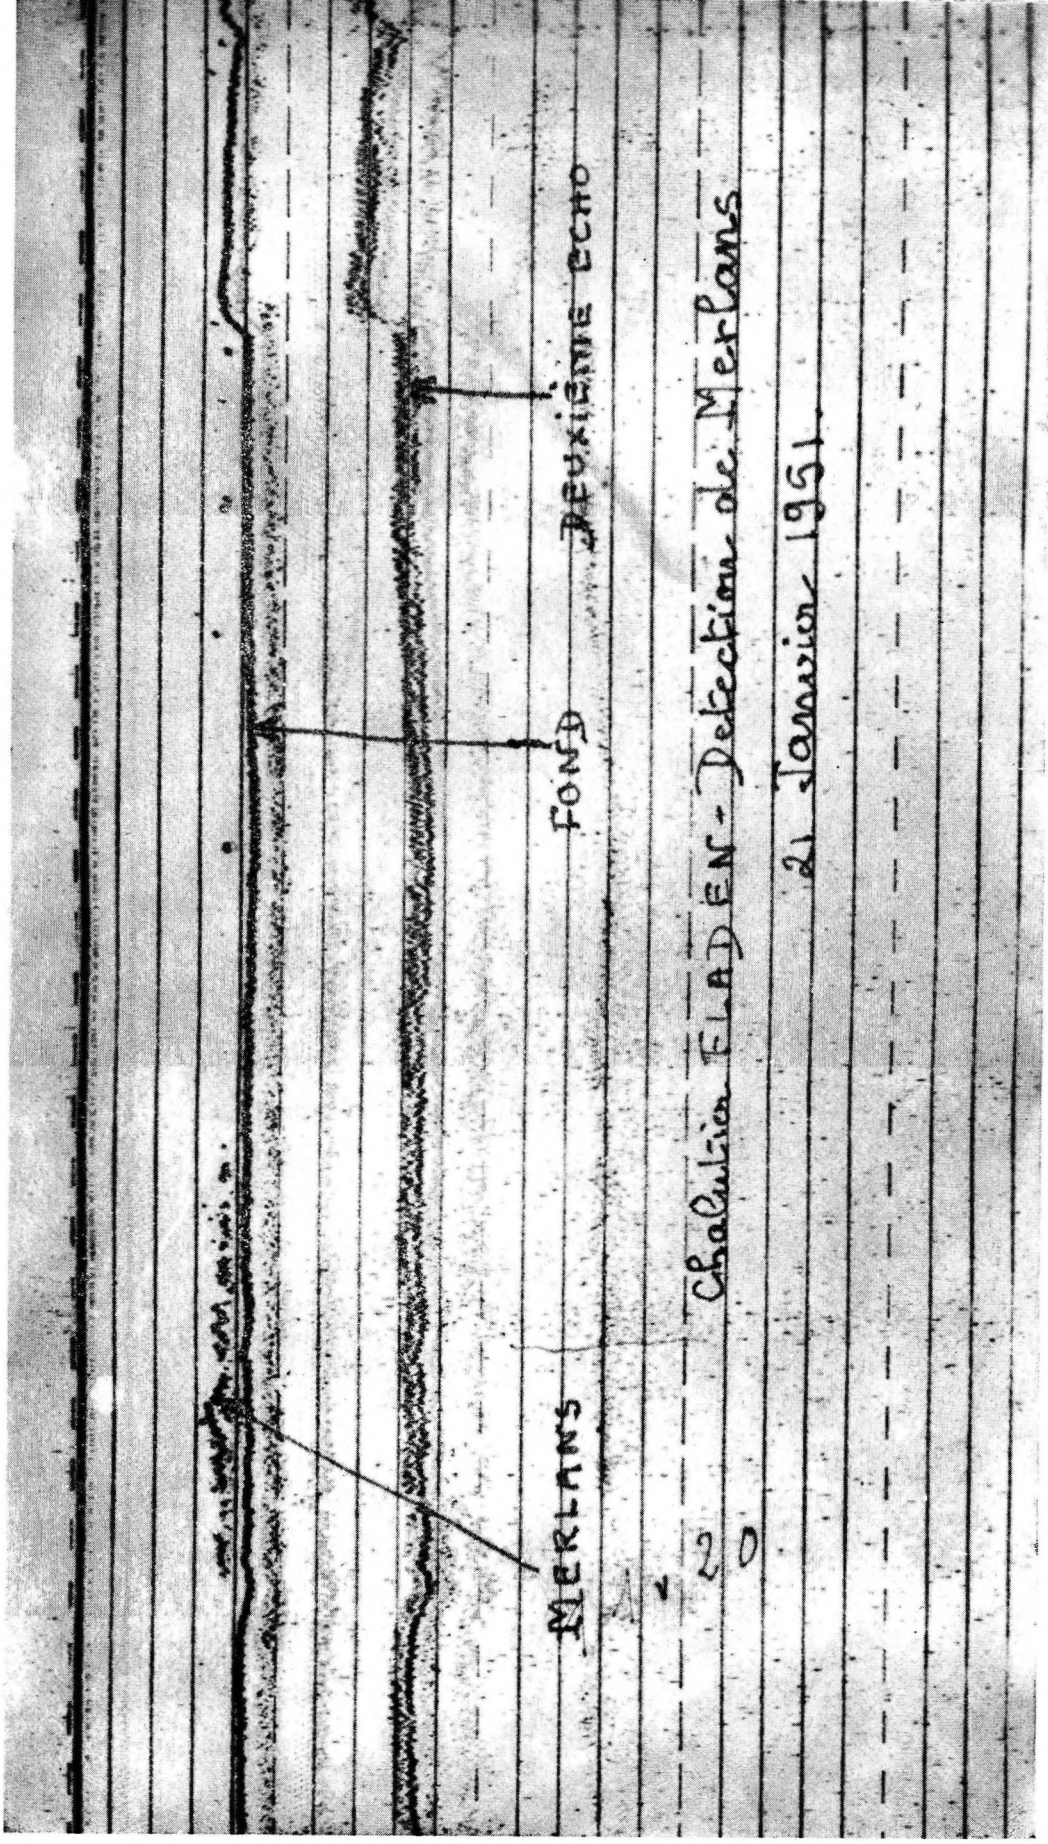 MERLANS
FOND
DEUXIÈME ECHO
20
Chalutier FLADEN - Detection de Merlans
21 Janvier 1951.